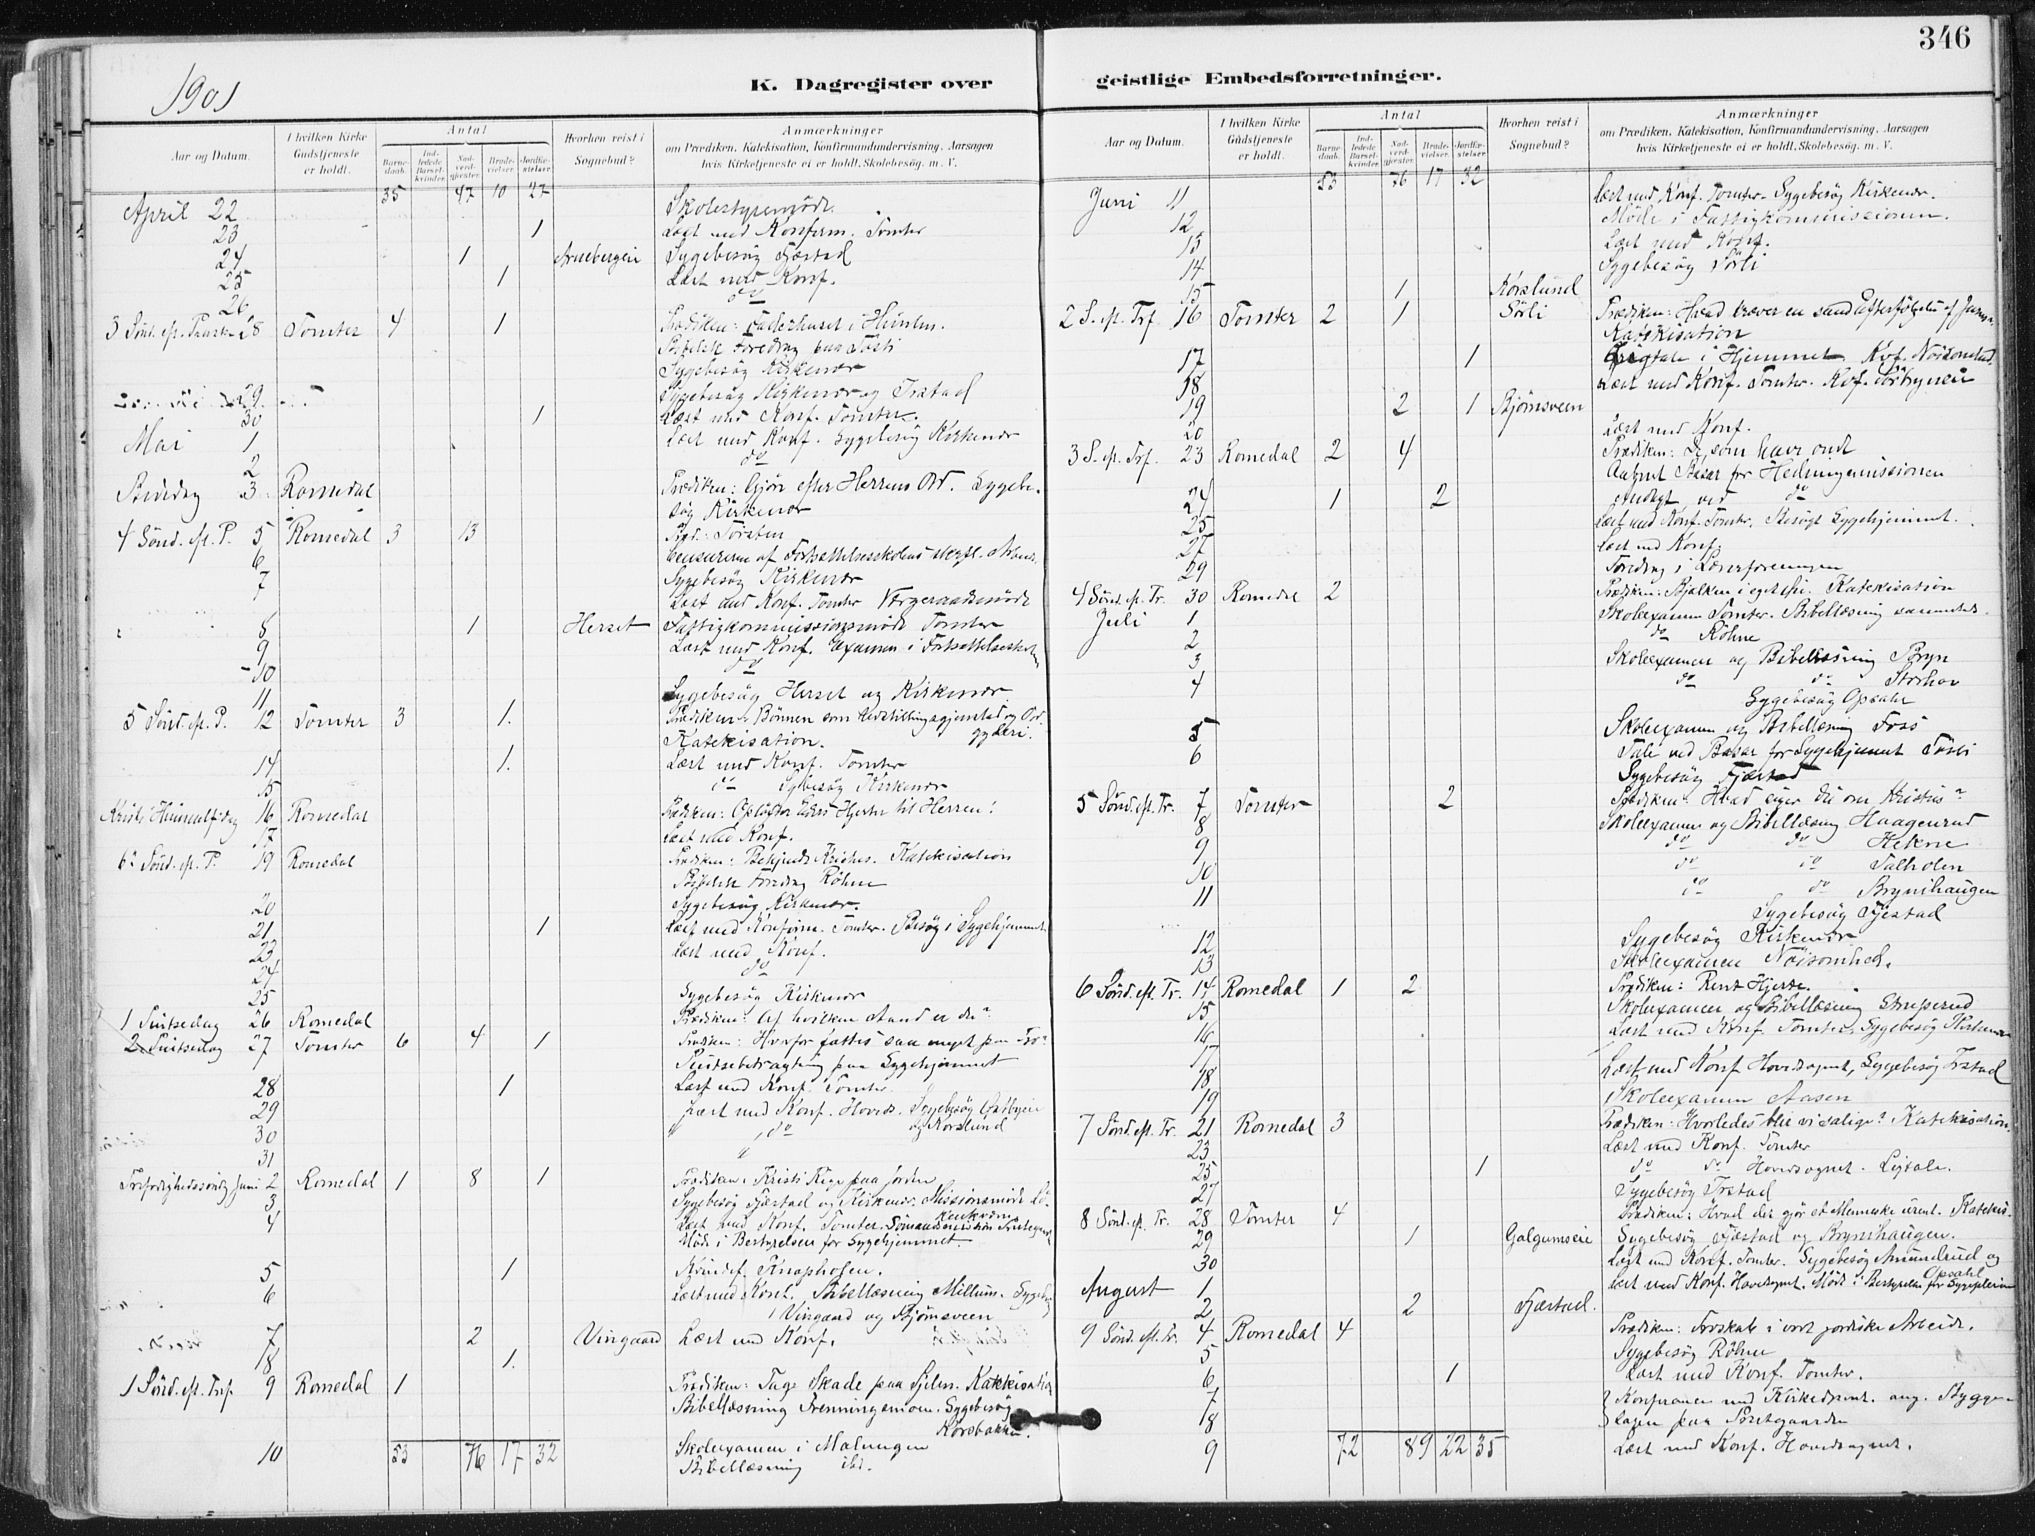 346
1901
K. Dagregister over geistlige Embedsforretninger.
Aar og Datum. I hvilken Kirke Gudstjeneste er holdt. Antal Barnedaab. Indledede Barselkvinder. Nadverdgjester. Brudevielser. Jordfæstelser. Hvorhen reist i Sognebud? Anmærkninger om Prædiken, Katekisation, Konfirmandundervisning, Aarsagen hvis Kirketjeneste ei er holdt, Skolebesög, m. V.
35 47 10 27
April 22 Skolestyremöde.
23 1 Læst med Konfirm. Tomter
24 1 Sygebesög Fjæstad
25 1 Læst med Konf.
26 do
3 Sönd. ef. Paaske 28 Tomter 4 1 Prædiken: Faderhuset i Himlen.
Bibelsk Foredrag paa Tosti
Sygebesög Kirkenær
29 Sygebesög Kirkenær og Frstad
30 1 Læst med Konf. Tomter.
Mai 1 Læst med Konf. Sygebesög Kirkenær
2 do
Bededag 3 Romedal Prædiken: Gjör efter Herrens Ord. Sygebesög Kirkenær
4 Sönd. ef. P. 5 Romedal 3 13 Præd.:
6
Sygebesög Kirkenær
7 Læst med Konf. Tomter Værgeraadsmöde
8 1 Herset Fattigkommissionsmöde Tomter
9 Læst med Konf. Examen i Fortsættelsesskolen
10 do
11 Sygebesög Herset og Kirkenær
5 Sönd. ef. P. 12 Tomter 3 1. Prædiken: Bönnen som
Katekisation.
14 1. Læst med Konf. Tomter
15 do Sygebesög Kirkenær
Kristi Himmelf.dag 16 Romedal Prædiken: Opløfter Eders Hjerter til Herren!
17 Læst med Konf.
6 Sönd. ef. P. 19 Romedal Prædiken: Bekjende Kristus. Katekisation
Bibelsk Foredrag Röhne
20 Sygebesög Kirkenær.
21 1 Læst med Konfirm. Tomter. Besög i Sygehjemmet
23 Læst med Konf.
24 do
25 Sygebesög Kirkenær
1 Pintsedag 26 Romedal Prædiken: Af hvilken Aand er du?
2 Pintsedag 27 Tomter 6 4 1 Prædiken: Hvorfor fattes saa meget paa Tro?
Pintsebetragtning paa Sygehjemmet
28 1 Læst med Konf. Tomter.
29 Læst med Konf. Hoveds. Sygebesög
30 do og Korslund
31
Trefoldighedssöndag Juni 2 Romedal 1 8 1 Prædiken: Kristi Rige paa Jorden
3 Sygebesög Fjæstad og Kirkenær. Missionsmöde
4 Læst med Konf. Tomter.
Möde i Bestyrelsen for Sygehjemmet.
5 1 Knaphofen.
6 Læst med Konf. Bibellæsning Millum. Sygebesög
Vingaard og Bjørnsveen
7 2 Vingaard Læst med Konf.
8 1.
1 Sönd. ef. Tref. 9 Romedal 1 Prædiken: Tage Skade paa Sjelen. Katekisation
Bibellæsning Trenningsmoen. Sygebesög
Korsbakken.
10 Skoleexamen i Malungen
Bibellæsning ibi.
53 76 17 32
Aar og Datum. I hvilken Kirke Gudstjeneste er holdt. Antal Barnedaab. Indledede Barselkvinder. Nadverdgjester. Brudevielser. Jordfæstelser. Hvorhen reist i Sognebud? Anmærkninger om Prædiken, Katekisation, Konfirmandundervisning, Aarsagen hvis Kirketjeneste ei er holdt, Skolebesög, m. V.
53 76 17 32
Juni 11 Læst med Konf. Tomter. Sygebesög Kirkenær.
12 Möde i Fattigkommissionen.
13 Læst med Konf.
14 Sygebesög Sörli
15 1 Korslund
2 S. ef. Tref. 16 Tomter 2 1 Sörli Prædiken: Hvad kræver en sand Efterfølgelse af Jesus.
Katekisation
17 1 Ligtale i Hjemmet
18 Læst med Konf. Tomter.
19 2 1 Bjørnsveen
20 Læst med Konf.
3 S. ef. Tref. 23 Romedal 2 4 Prædiken: De, som have ondt
Aabnet Basar for Hedningemissionen
24 1 2 Andagt ved do
25 Læst med Konf. Tomter. Besögt Sygehjemmet.
27 Læst med Konf.
29 Foredrag i Lærerforeningen
4 Sönd. ef. Tr. 30 Romedal 2 Prædiken: Bjælken i eget Öie. Katekisation
Juli 1 Skoleexamen Tomter. Bibellæsning sammested.
2 do Röhne
3 Skoleexamen og Bibellæsning Bryn
4 do do Storhov
Sygebesög Opsahl
5 Skoleexamen og Bibellæsning Foss
6 Tale ved Basar for Sygehjemmet Tosti
Sygebesög Fjæstad
5 Sönd. ef. Tr. 7 Tomter 2 Prædiken: Hvad siger du om Kristus?
8 Skoleexamen og Bibellæsning Haagenrud
9 do do Hekne
10 do do Sætholen
11 do do Brynshaugen
Sygebesög Fjæstad
12 Sygebesög Kirkenær
13 Skoleexamen Nöisomhed.
6 Sönd. ef. Tr. 14 Romedal 1 2 Prædiken: Rent Hjerte.
15 Skoleexamen og Bibellæsning Struperud
16 Læst med Konf. Tomter. Sygebesög Kirkenær
17
18 Læst med Konf. Hovedsognet, Sygebesög Frstad
19 Skoleexamen Aasen
7 Sönd. ef. Tr. 21 Romedal 3 Prædiken: Hvorledes blir vi salige? Katekisation.
23 Læst med Konf. Tomter
25 1 do do Hovedsognet. Ligtale.
27 Sygebesög Frstad
8 Sönd. ef. Tr. 28 Tomter 4 Prædiken: Hvad der gjör et Menneske urent. Katekis.
29 1 Galgumseie Sygebesög Fjæstad og Brynshaugen.
30 Læst med Konf. Tomter. Sygebesög Amundrud og Opsahl
August 1 Læst med Konf. Hovedsognet. Möde i Bestyrelsen for Sygepleien
2 2 Fjæstad.
9 Sönd. ef. Tr. 4 Romedal 4 Prædiken: Troskab i vort jordiske Arbeide.
5 Sygebesög Röhne
6 1 Læst med Konf. Tomter.
7 Konferance med Kirkedepart. ang. Byggesagen
8 paa Præstegaarden
9 Læst med Konf. Hovedsognet.
72 89 22 35